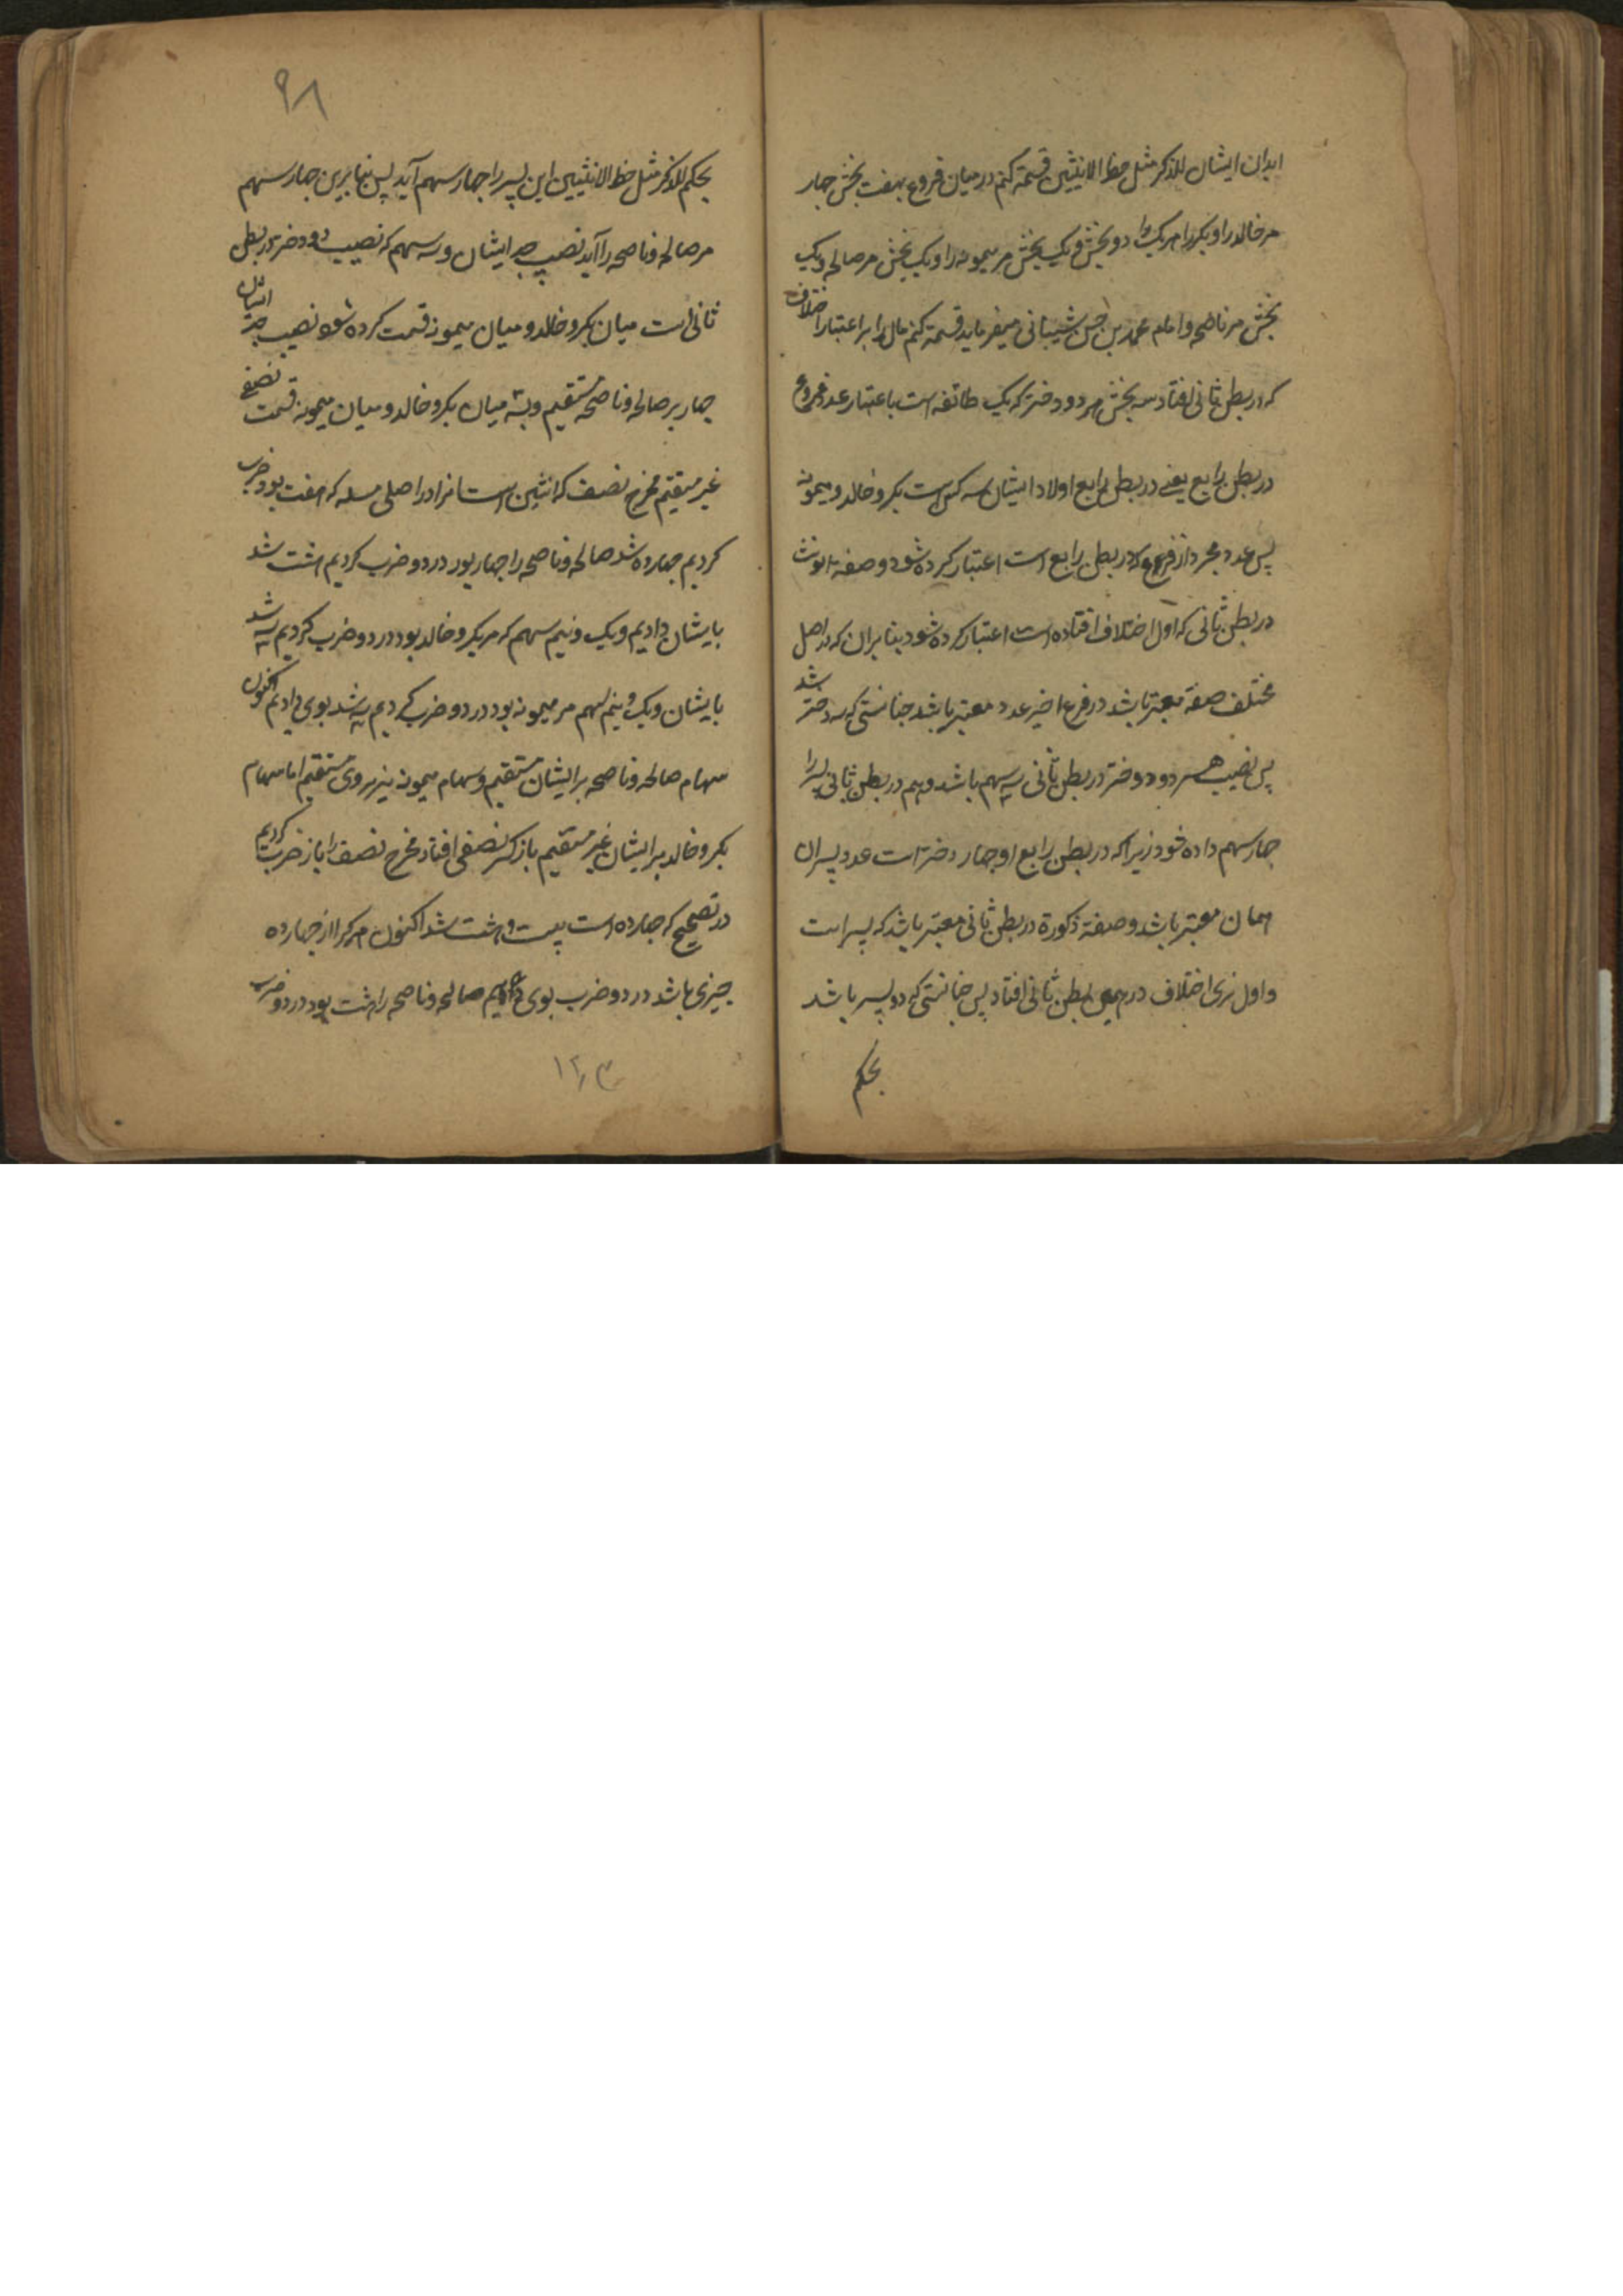 ابدان ایشان للذکر مثل حظ الانثیین قسمة کنم درمیان فروع بهفت بخش چهار
مر خالد را و بکر را هر یک را دو بخش و یک بخش مر میمونه را و یک بخش مر صالحه و یک
بخش مر ناصحه و امام محمد بن حسن شیبانی میفرماید قسمة کنم مال را بر اعتبار اختلاف
که در بطن ثانی افتاد سه بخش مر دو دختر که یک طائفه است باعتبار عدد فروع
در بطن رابع یعنی در بطن رابع اولاد ایشان سه کس است بکر و خالد و میمونه
پس عدد مجرد از فروع که در بطن رابع است اعتبار کرده شود و صفة انوثت
در بطن ثانی که اول اختلاف افتاده است اعتبار کرده شود بنا بران که در اصل
مختلف صفة معتبر باشد در فرع اخیر عدد معتبر باشد چنانستی که سه دختر شد
پس نصیب هر دو دختر در بطن ثانی سه سهم باشد و هم در بطن ثانی پسر را
چهار سهم داده شود زیرا که در بطن رابع او چهار دختر است عدد پسران
همان معتبر باشد و صفة ذکورة در بطن ثانی معتبر باشد که پسر است
و اول نری اختلاف در همین بطن ثانی افتاد پس چنانستی که دو پسر باشد
بحکم
۹۸
بحکم للذکر مثل حظ الانثیین این پسر را چهار سهم آید پس بنا برین چهار سهم
مر صالحه و ناصحه را آید نصیب جد ایشان و سه سهم که نصیب دو دختر در بطن
ثانی است میان بکر و خالد و میان میمونه قسمت کرده شود نصیب جد ایشان
چهار بر صالحه و ناصحه مستقیم و سه میان بکر و خالد و میان میمونه قسمت نصفی
غیر مستقیم مخرج نصف که اثنین است انرا در اصلی مسله که هفت بود ضرب
کردیم چهارده شد صالحه و ناصحه را چهار بود در دو ضرب کردیم هشت شد
بایشان دادیم و یک و نیم سهم که مر بکر و خالد بود در دو ضرب کردیم سه شد
بایشان و یک و نیم سهم مر میمونه بود در دو ضرب کردیم سه شد بوی دادیم اکنون
سهام صالحه و ناصحه بر ایشان مستقیم و سهام میمونه نیز بر وی مستقیم اما سهام
بکر و خالد بر ایشان غیر مستقیم باز کسر نصفی افتاد مخرج نصف را باز ضرب کردیم
در تصحیح که چهارده است بیست و هشت شد اکنون هر کرا از چهارده
چیزی باشد در دو ضرب بوی دادیم صالحه و ناصحه را هشت بود در دو ضرب